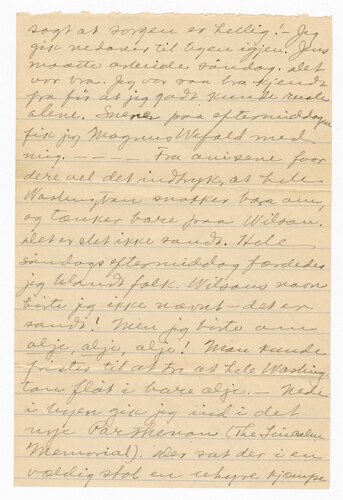 sagt at sorgen er hellig! — Jeg
gik nedover til byen igjen. Jens
maatte arbeide søndag. Det
var bra. Jeg var saa bra kjendt
fra før at jeg godt kunde rusle
alene. Senere paa eftermiddagen
fik jeg Magnus Wefald med
mig. — — — — Fra aviserne faar
dere vel det indtryk, at hele
Washington snakker bara om,
og tænker bare paa Wilson.
Det er slet ikke sandt. Hele
søndags eftermiddag færdedes
jeg blandt folk. Wilsons navn
hørte jeg ikke nævnt — det er
sandt! Men jeg hørte om
olje, olje, olje! Man kunde
fristes til at tro at hele Washing
ton fløt i bare olje. — Nede
i byen gik jeg ind i det
nye Parthenon (The Lincoln
Memorial). Der sat der i en
vældig stol en uhyre kjæmpe